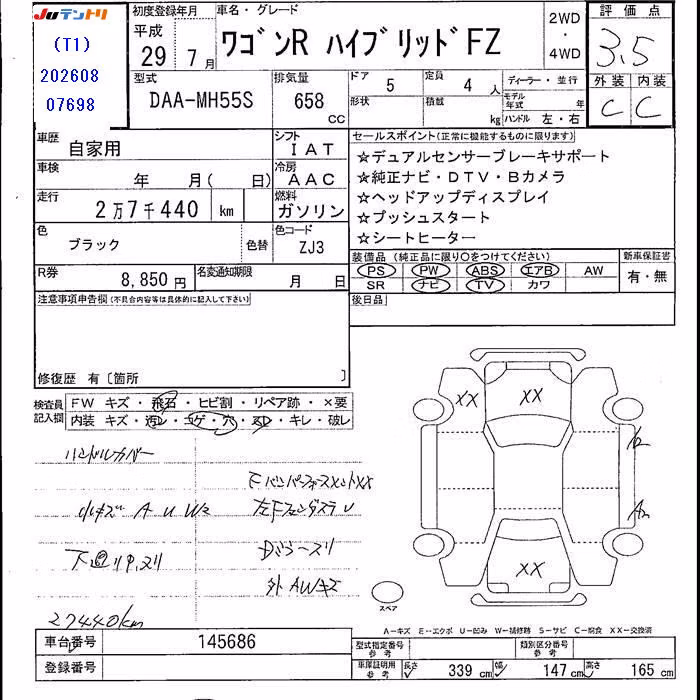 JUテントリ 初度登録年月 車名・グレード 2WD ・ 4WD 評価点
(T1) 平成 29年 7月 ワゴンR ハイブリッドFZ 3.5
202608
07698
型式 DAA-MH55S 排気量 658 CC
ドア 5 定員 4 人 ディーラー・並行 外装 内装
形状 積載 kg モデル年式 年 C C
ハンドル 左・右
車歴 自家用 シフト IAT
車検 年 月( 日) 冷房 AAC
走行 2万7千440 km 燃料 ガソリン
色 ブラック 色替 色コード ZJ3
R券 8,850円 名変通知期限 月 日
セールスポイント(正常に機能するものに限ります)
☆デュアルセンサーブレーキサポート
☆純正ナビ・DTV・Bカメラ
☆ヘッドアップディスプレイ
☆プッシュスタート
☆シートヒーター
装備品 (純正品に限り○をつけてください) 新車保証書
PS PW ABS エアB AW 有・無
SR ナビ TV カワ
後日品
注意事項申告欄(不具合内容等は具体的に記入して下さい)
修復歴 有〔箇所 〕
検査員記入欄 FW キズ・飛石・ヒビ割・リペア跡・×要
内装 キズ・汚レ・コゲ・穴・スレ・キレ・破レ
ハンドルカバー
小キズ A U W2
下廻りサ,スリ
27440km
FバンパーフォースメントXX
左Fフェンダステ U
Dミラースリ
外AWキズ
XX XX
XX
スペア
A-キズ E-エクボ U-凹み W-補修跡 S-サビ C-腐食 XX-交換済
車台番号 145686
登録番号
型式指定番号 参考 類別区分番号 参考
車庫証明用 参考 長さ 339 cm 幅 147 cm 高さ 165 cm